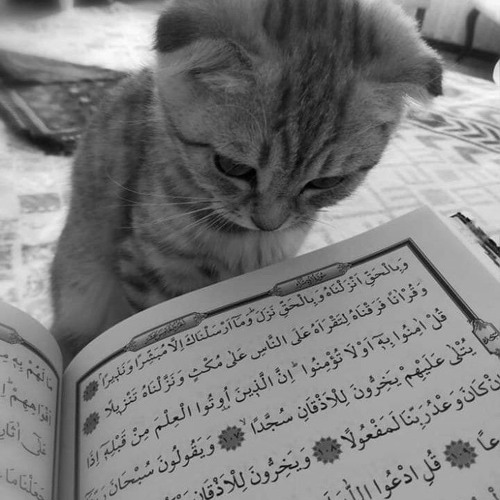 وَبِالْحَقِّ اَنْزَلْنَاهُ وَبِالْحَقِّ نَزَلَ وَمَٓا اَرْسَلْنَاكَ اِلَّا مُبَشِّرًا وَنَذِيرًا
وَقُرْاٰنًا فَرَقْنَاهُ لِتَقْرَاَهُ عَلَى النَّاسِ عَلٰى مُكْثٍ وَنَزَّلْنَاهُ تَنْزِيلًا
قُلْ اٰمِنُوا بِهِ اَوْ لَا تُؤْمِنُوا اِنَّ الَّذِينَ اُوتُوا الْعِلْمَ مِنْ قَبْلِهِ اِذَا
يُتْلٰى عَلَيْهِمْ يَخِرُّونَ لِلْاَذْقَانِ سُجَّدًا ١٠٧ وَيَقُولُونَ سُبْحَانَ
كَانَ وَعْدُ رَبِّنَا لَمَفْعُولًا ١٠٨ وَيَخِرُّونَ لِلْاَذْقَانِ
قُلِ ادْعُوا اللّٰهَ
مَا لَهُمْ بِهِ
اَفْوَاهِهِمْ
عَلٰٓى
جَعَلْنَا مَا